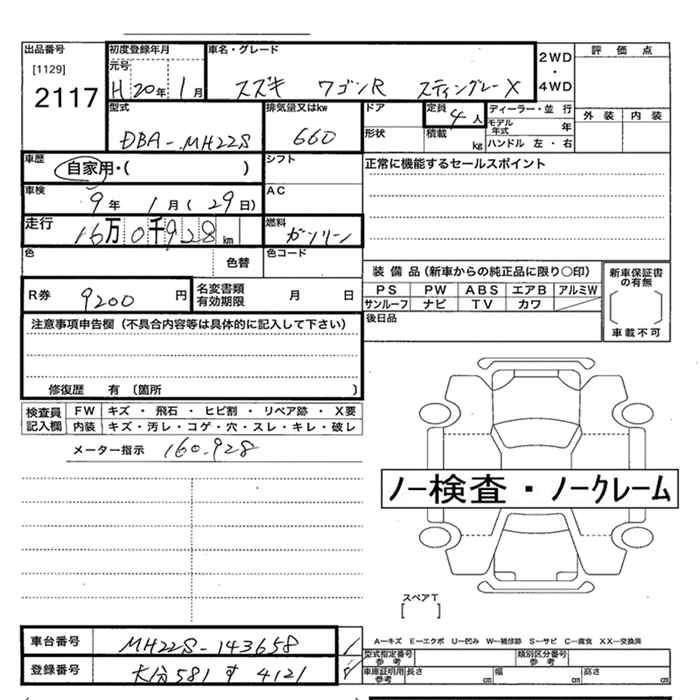 出品番号
[1129]
2117
初度登録年月
元号
H20年 1月
車名・グレード
スズキ ワゴンR スティングレーX
2WD
・
4WD
評価点
外装 内装
型式
DBA-MH22S
排気量又はkw
660
ドア
形状
定員
4人
積載 kg
ディーラー・並行
モデル年式 年
ハンドル 左・右
車歴
自家用・( )
シフト
正常に機能するセールスポイント
車検
9年 1月(29日)
AC
走行
16万0千928km
燃料
ガソリン
色
色替
色コード
R券
9200円
名変書類有効期限 月 日
装備品(新車からの純正品に限り○印)
PS PW ABS エアB アルミW
サンルーフ ナビ TV カワ
新車保証書の有無
車載不可
後日品
注意事項申告欄(不具合内容等は具体的に記入して下さい)
修復歴 有 (箇所 )
検査員記入欄
FW キズ・飛石・ヒビ割・リペア跡・X要
内装 キズ・汚レ・コゲ・穴・スレ・キレ・破レ
メーター指示 160.928
ノー検査・ノークレーム
スペアT
[ ]
車台番号
MH22S-143658
登録番号
大分581す4121
A―キズ E―エクボ U―凹み W―補修跡 S―サビ C―腐食 XX―交換済
型式指定番号参考
類別区分番号参考
車庫証明用参考
長さ cm
幅 cm
高さ cm